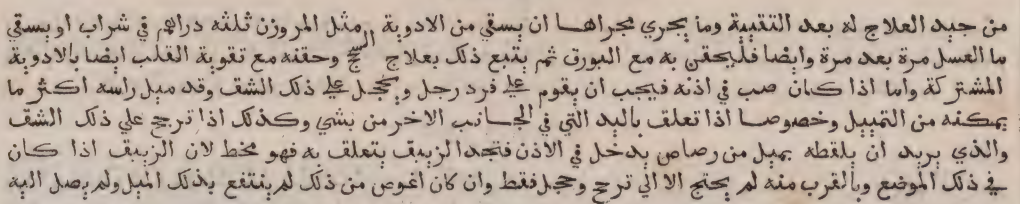 من جيد العلاج له بعد التقيية وما يجري مجراها ان يسقي من الادوية مثل المر وزن ثلثه دراهم في شراب او يسقي
ما العسل مرة بعد مرة وايضا فليحقن به مع البورق ثم يتبع ذلك بعلاج السحج وحقنه مع تقوية القلب ايضا بالادوية
المشتركة واما اذا كان صب في اذنه فيجب ان يقوم علي فرد رجل ويحجل علي ذلك الشق وقد ميل راسه اكثر ما
يمكنه من التمييل وخصوصا اذا تعلق باليد التي في الجانب الاخر من بشي وكذلك اذا ترجح علي ذلك الشق
والذي يريد ان يلقطه بميل من رصاص يدخل في الاذن فتجد الزيبق يتعلق به فهو مخط لان الزيبق اذا كان
في ذلك الموضع وبالقرب منه لم يحتج الا الي ترجح وحجل فقط وان كان اغوص من ذلك لم ينتفع بذلك الميل ولم يصل اليه